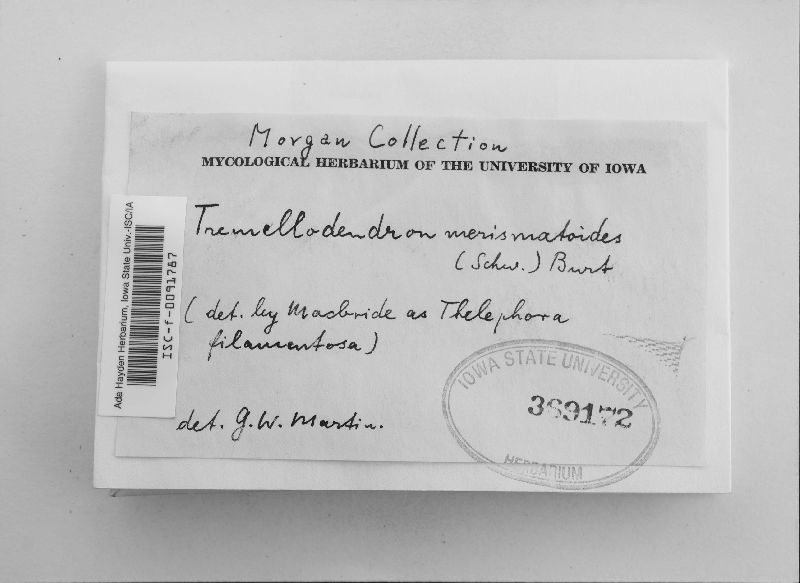 Morgan Collection
MYCOLOGICAL HERBARIUM OF THE UNIVERSITY OF IOWA
Tremellodendron merismatoides
(Schw.) Burt
(det. by Macbride as Thelephora
filamentosa)
det. G.W. Martin.
Ada Hayden Herbarium, Iowa State Univ.-ISC/IA
ISC-f-0091787
IOWA STATE UNIVERSITY
389172
HERBARIUM